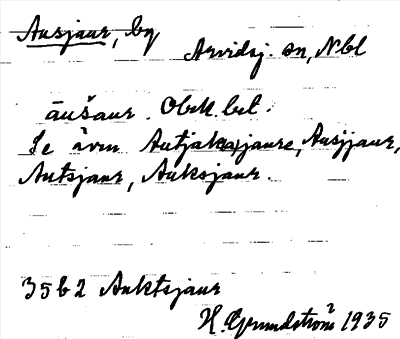 Ausjaur, by
Arvidsj. sn, Nbl
āušaur. Obek. bet.
Se även Autjakajaure, Ausjjaur,
Autsjaur, Auksjaur.
35 b 2 Auktsjaur
H. Grundström 1935